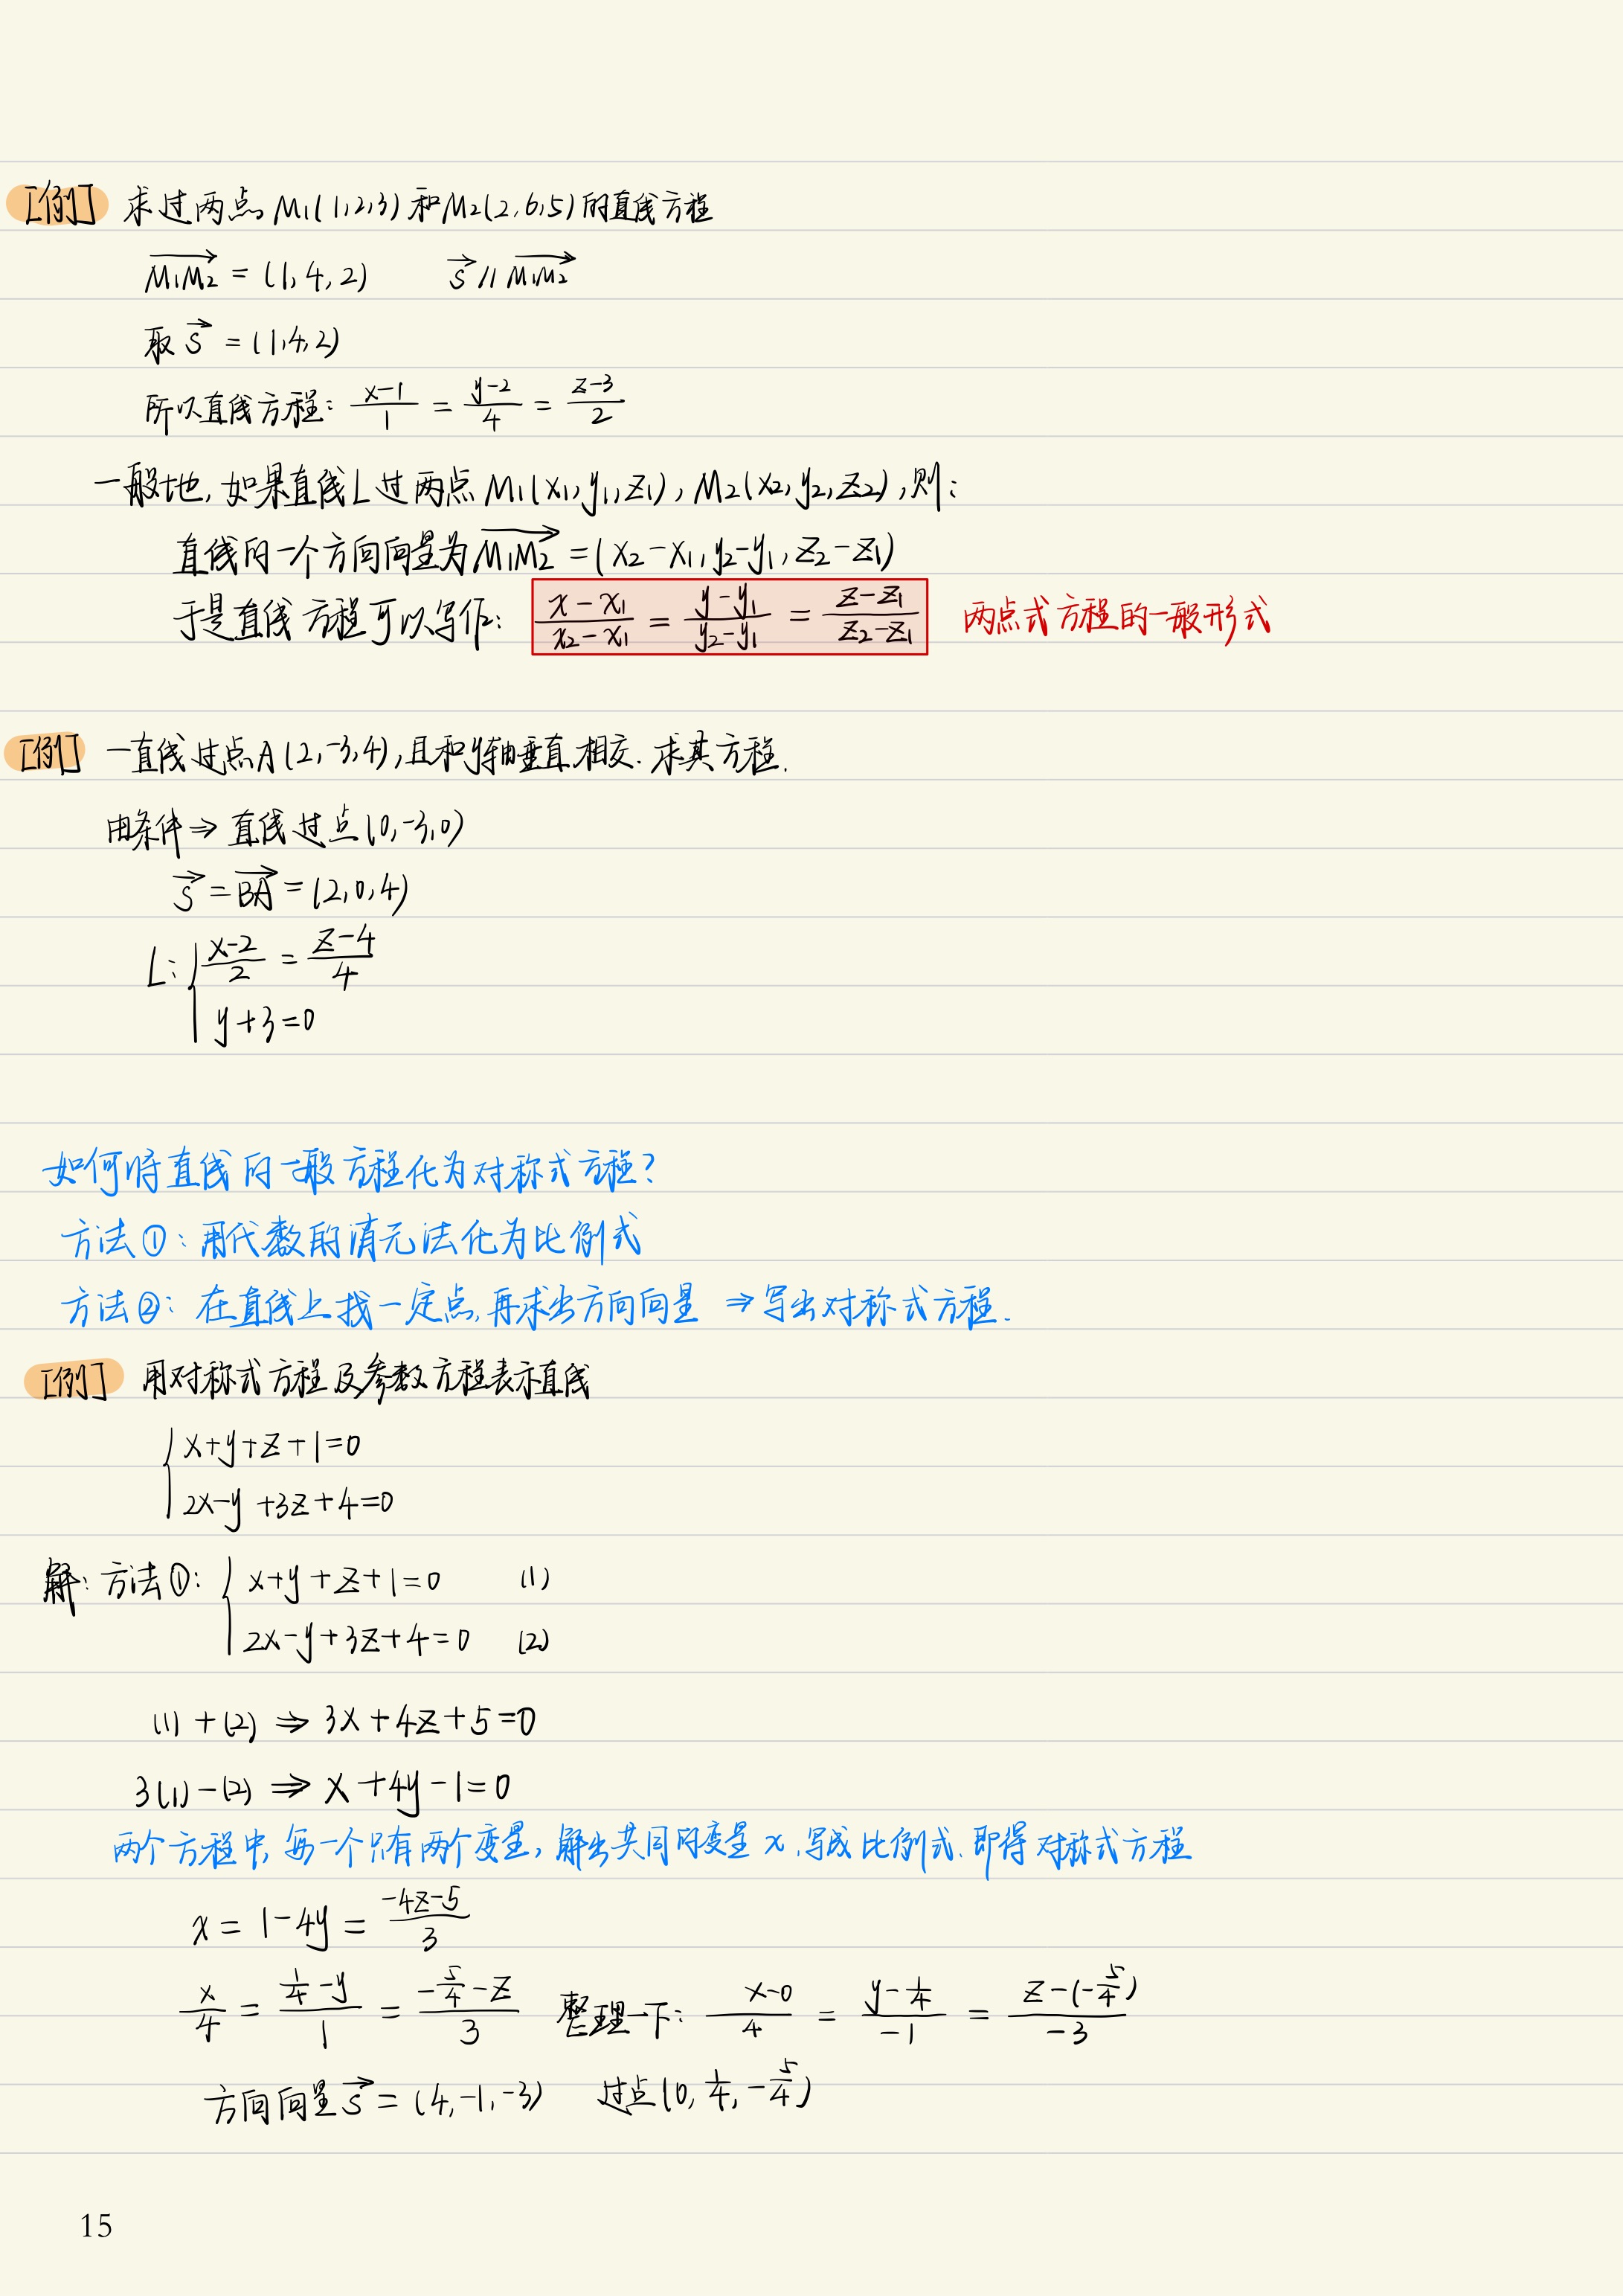 [例] 求过两点 M₁(1,2,3) 和 M₂(2,6,5) 的直线方程
$\overrightarrow{M_1M_2}$ = (1,4,2)  $\vec{s}$ // $\overrightarrow{M_1M_2}$
取 $\vec{s}$ = (1,4,2)
所以直线方程: $\frac{x-1}{1} = \frac{y-2}{4} = \frac{z-3}{2}$
一般地, 如果直线L过两点 M₁(x₁,y₁,z₁), M₂(x₂,y₂,z₂), 则:
直线的一个方向向量为 $\overrightarrow{M_1M_2}$ = (x₂-x₁, y₂-y₁, z₂-z₁)
于是直线方程可以写作: $\frac{x-x_1}{x_2-x_1} = \frac{y-y_1}{y_2-y_1} = \frac{z-z_1}{z_2-z_1}$ 两点式方程的一般形式
[例] 一直线过点A(2,-3,4), 且和y轴垂直相交. 求其方程.
由条件⇒直线过点(0,-3,0)
$\vec{s}$ = $\overrightarrow{BA}$ = (2,0,4)
L: { $\frac{x-2}{2} = \frac{z-4}{4}$
y+3=0
如何将直线的一般方程化为对称式方程?
方法①: 用代数的消元法化为比例式
方法②: 在直线上找一定点,再求出方向向量 ⇒写出对称式方程.
[例] 用对称式方程及参数方程表示直线
{ x+y+z+1=0
2x-y+3z+4=0
解: 方法①: { x+y+z+1=0 (1)
2x-y+3z+4=0 (2)
(1)+(2) ⇒ 3x+4z+5=0
3(1)-(2) ⇒ x+4y-1=0
两个方程中, 每一个只有两个变量, 解出共同的变量 x, 写成比例式, 即得对称式方程
x = 1-4y = $\frac{-4z-5}{3}$
$\frac{x}{4} = \frac{\frac{1}{4}-y}{1} = \frac{-\frac{5}{4}-z}{3}$ 整理一下: $\frac{x-0}{4} = \frac{y-\frac{1}{4}}{-1} = \frac{z-(-\frac{5}{4})}{-3}$
方向向量 $\vec{s}$ = (4,-1,-3) 过点(0, $\frac{1}{4}$, $-\frac{5}{4}$)
15